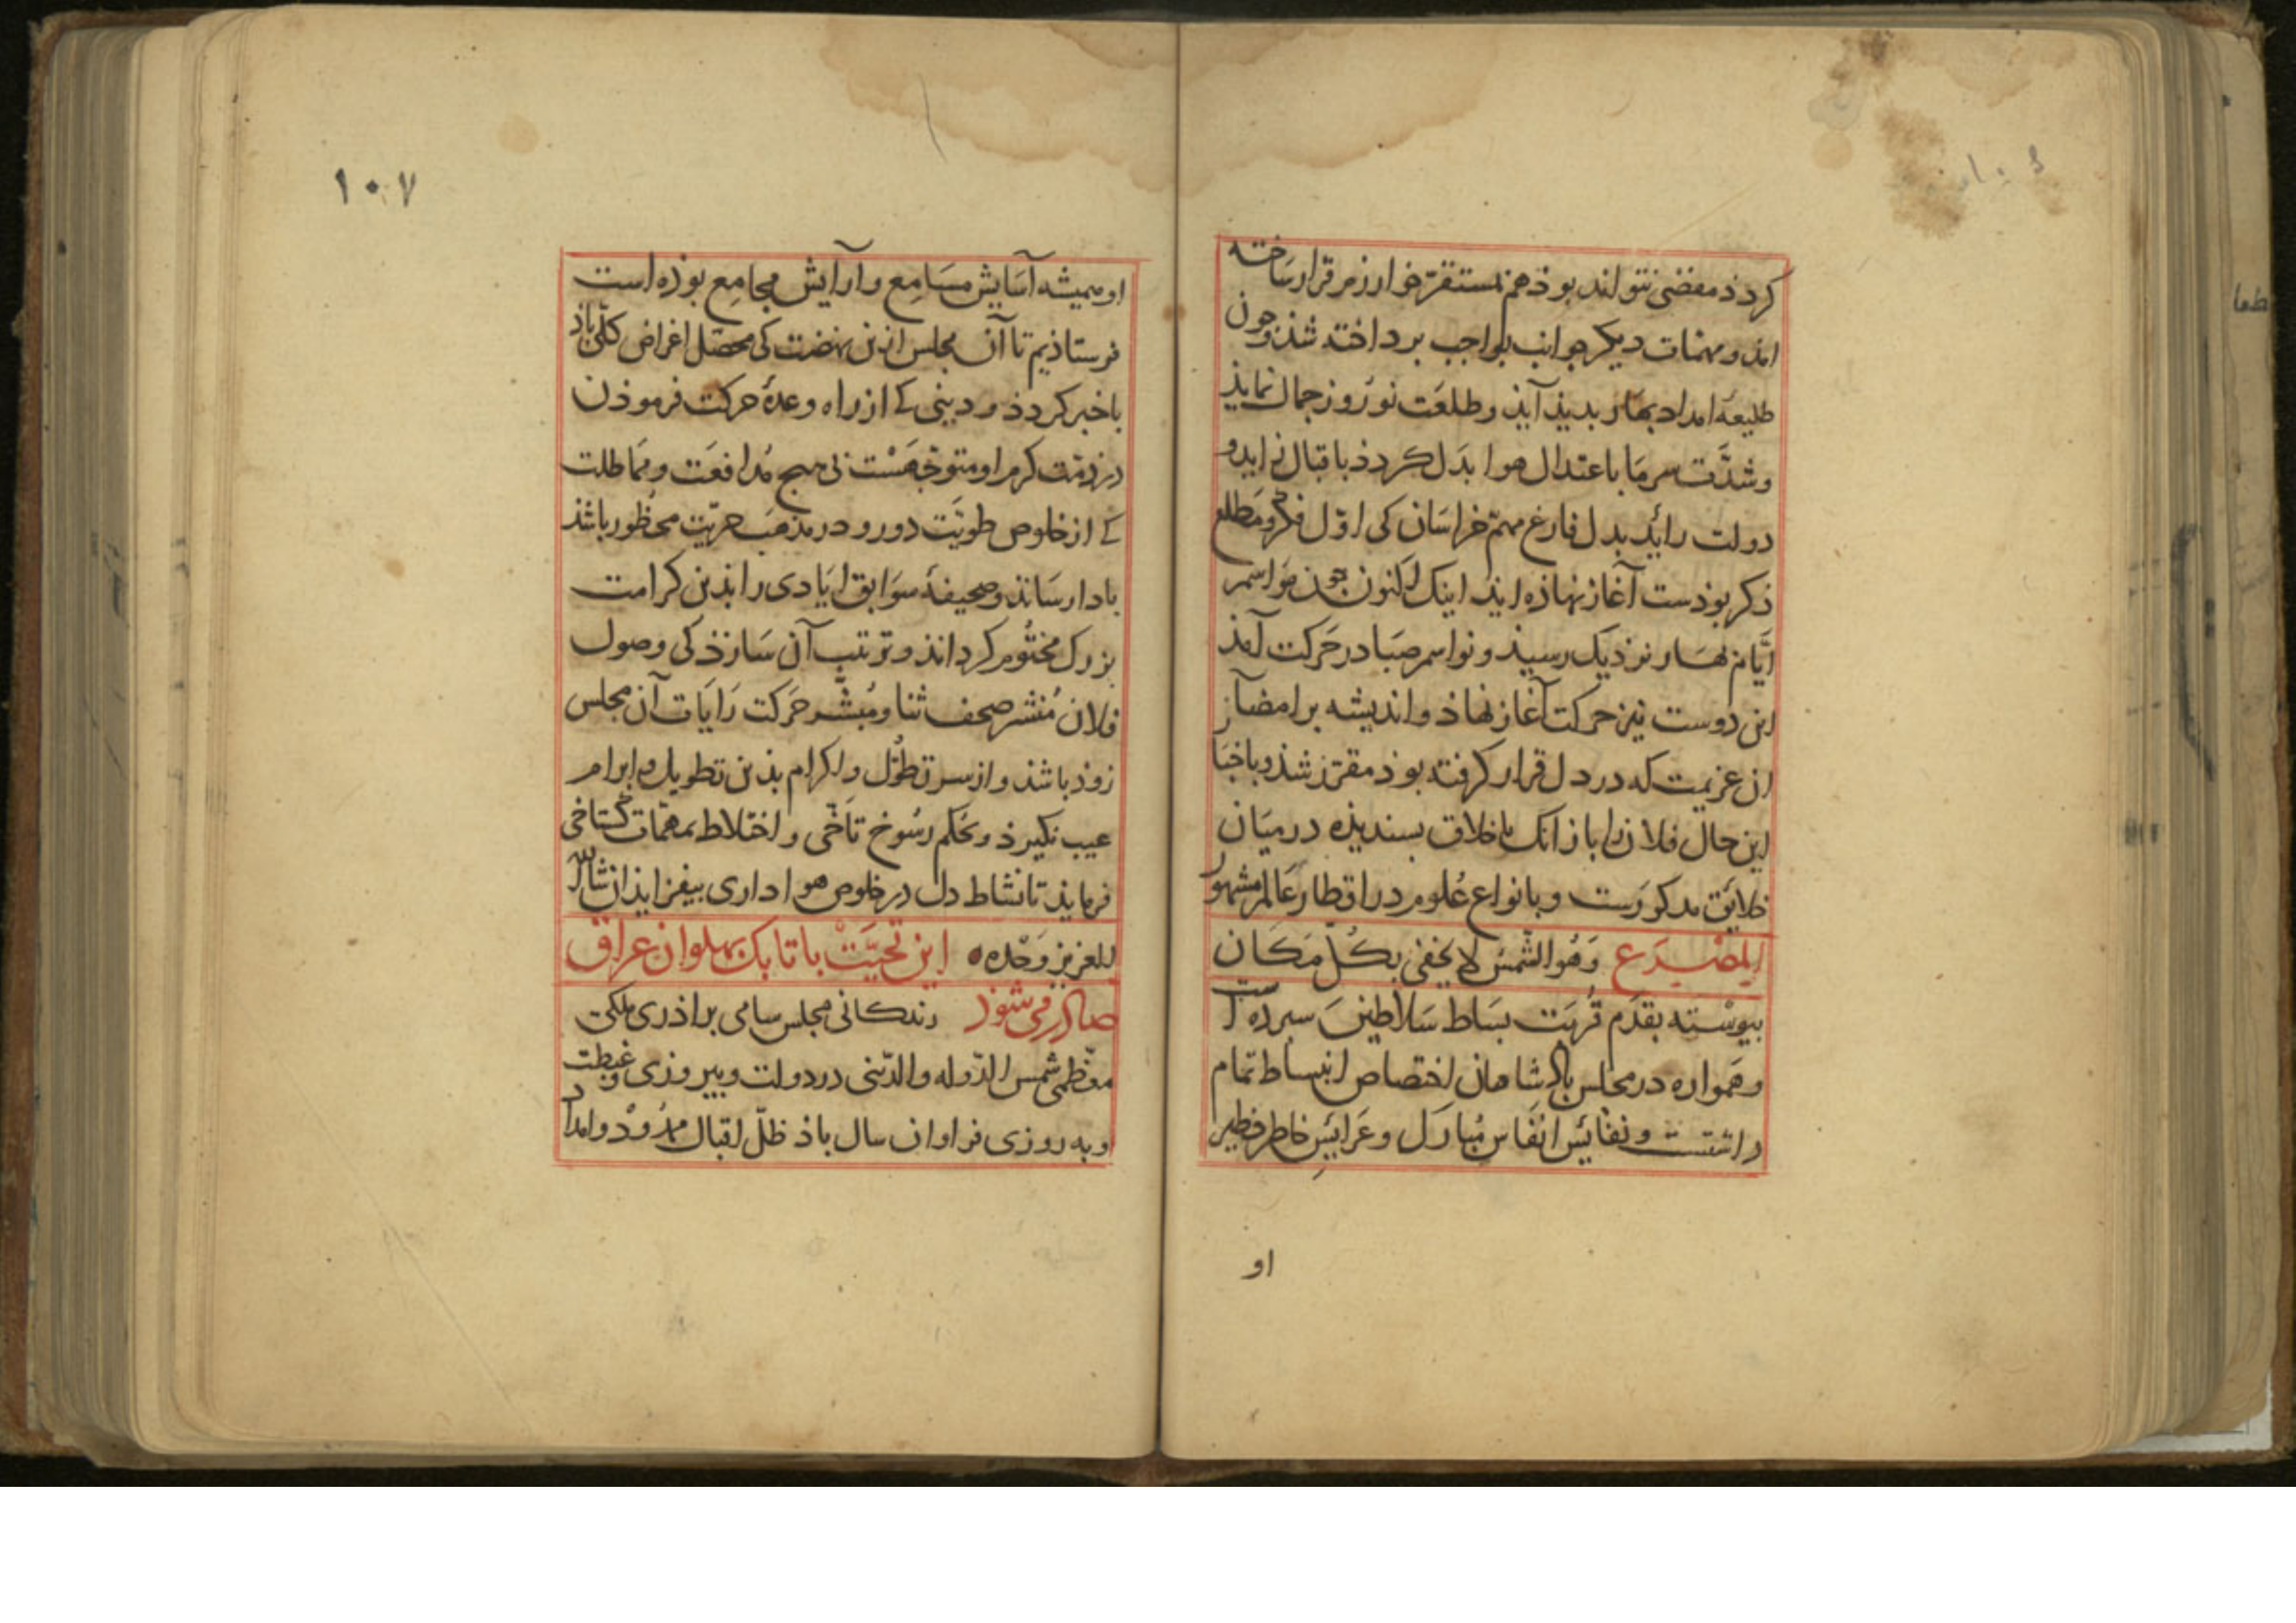 كردد مفضی نتواند بوذ هم بمستقر خوارزم قرار ساخته
امذ و مهمات ديكر جوانب بواجب برداخته شذ وجون
طليعه امداد بهار بديذ آيذ و طلعت نوروز جمال نمايذ
وشدّت سرما باعتدال هوا بدل كردذ باقبال زايد و
دولت رائد بدل فارغ مهمّ خراسان كی اوّل فكر و مطلع
ذكر بوذست آغاز نهاذه ايذ اينك اكنون جون مواسم
ايّام بهار نزديك رسيذ و نواسم صبا در حركت آمذ
اين دوست نيز حركت آغاز نهاذ و انديشه بر امضآ
ان عزيمت كه در دل قرار كرفته بوذ مقرّر شذ و باخبا
اين حال فلان را باز انك باخلاق بسنديذه در ميان
خلايق مذكورست و بانواع علوم در اقطار عالم مشهور
المصرع وَهُو الشّمس لا يخفی بكلّ مَكان
بيوسته بقدم قربت بساط سلاطين سبرده است
و همواره در مجلس باذشاهان اختصاص انبساط تمام
داشتست و نفائس انفاس مبارك و عرايس خاطر خطير
او
١٠٧
او هميشه آسايش مسامع و آرايش مجامع بوذه است
فرستاذيم تا آن مجلس ازين نهضت كی محصّل اغراض كلّی باذ
باخبر كردذ و دينی كے از راه وعدهٔ حركت فرموذن
در ذمّت كرم او متوجّهست بی هيج مدافعت و مماطلت
كے از خلوص طويّت دور و در مذهب حريّت محظور باشذ
بادا رسانذ و صحيفهٔ سوابق ايادی را بذين كرامت
بزرك مختوم كردانذ و ترتيب آن سازذ كی وصول
فلان مُنشر صحف ثنا و مُبشّر حركت رايات آن مجلس
زوذ باشذ و از سر تطوّل و اكرام بذين تطويل و ابرام
عيب نكيرذ و بحكم رسوخ تآخی و اختلاط بمهمات كستاخی
فرمايذ تا نشاط دل در خلوص هواداری بيفزايذ ان شاالله
العزيز وَحْده ه اين تحيّت باتابك بهلوان عراق
صادر می شوذ زندكانی مجلس سامی براذری ملكی
معظّمی شمس الدّوله والدّينی در دولت و بيروزی و غبطت
و به روزی فراوان سال باذ ظلّ اقبال ممدوْد و امداد